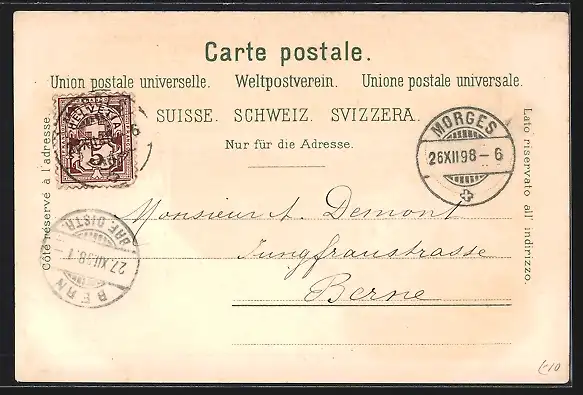 Carte postale.
Union postale universelle. Weltpostverein. Unione postale universale.
SUISSE. SCHWEIZ. SVIZZERA.
Nur für die Adresse.
Côté réservé à l'adresse.
Lato riservato all' indirizzo.
HELVETIA
5
MORGES
26XII98-6
Monsieur A. Demont
Jungfraustrasse
Berne
BRF. DISTR.
27.XII.98.
BERN